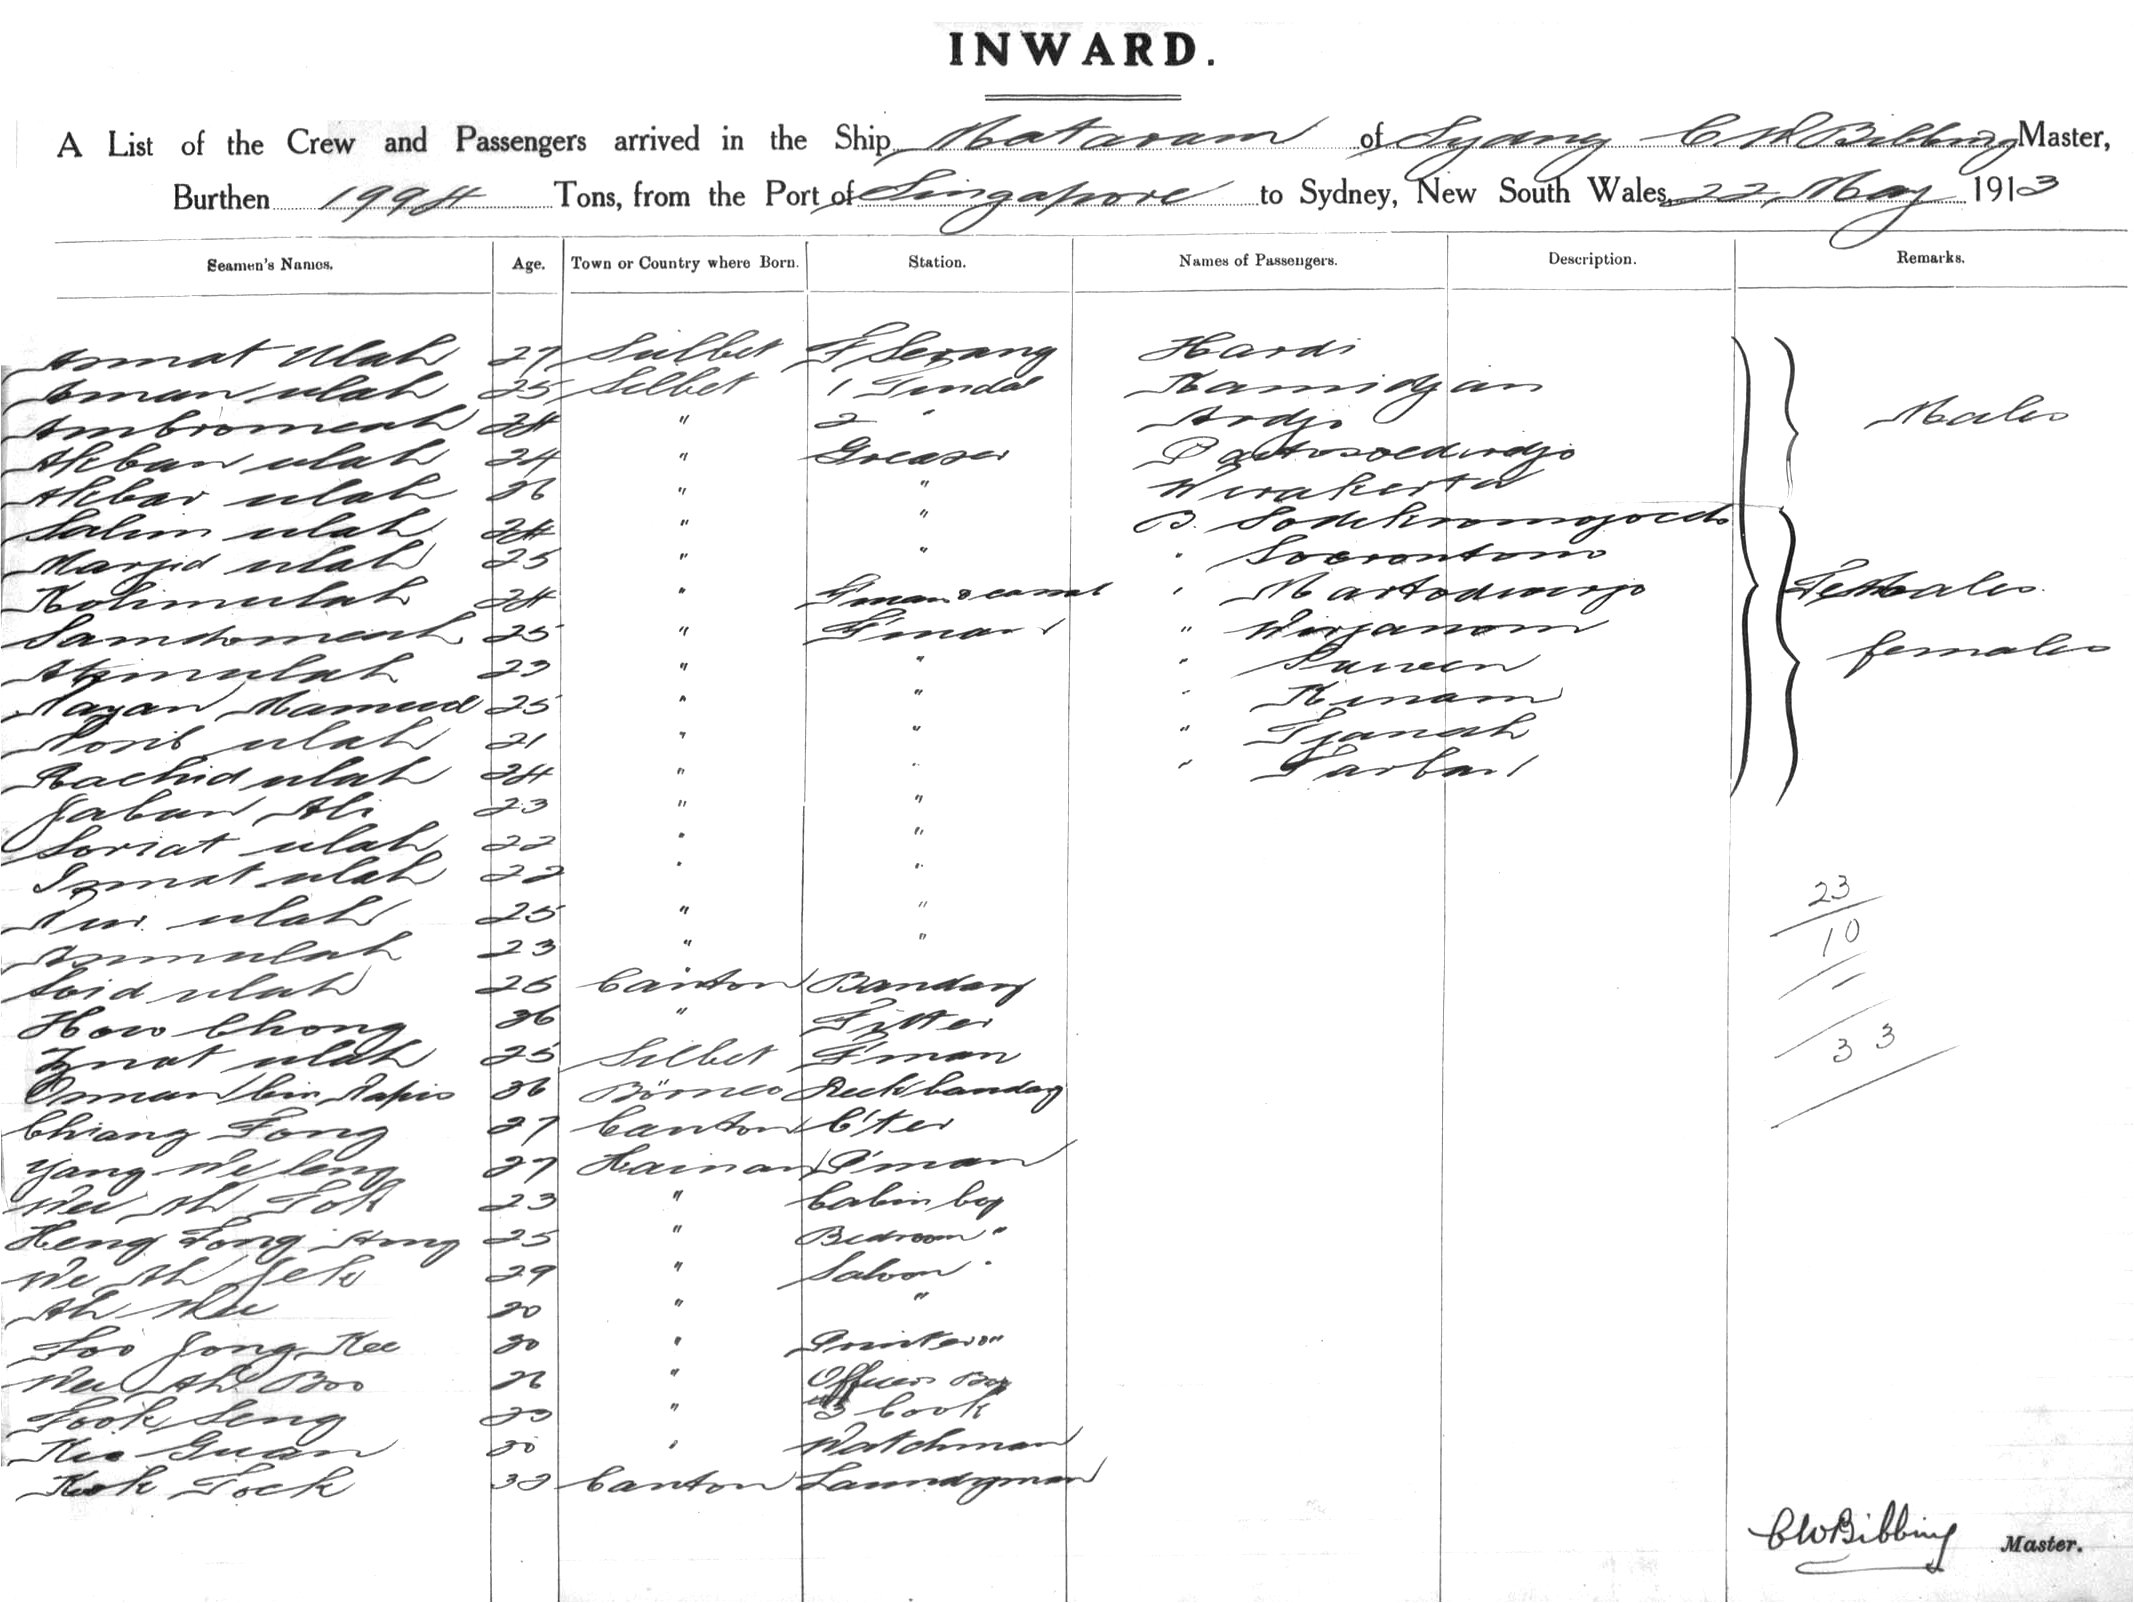 INWARD.
A List of the Crew and Passengers arrived in the Ship Mataram of Sydney C W Bibbing Master,
Burthen 1994 Tons, from the Port of Singapore to Sydney, New South Wales, 22 May 1913
Seamen's Names. Age. Town or Country where Born. Station. Names of Passengers. Description. Remarks.
Asmat Ulah 27 Silbet F Serang Hardi
Aman ulah 25 Silbet 1 Tindal Kamidjan
Ambromeah 24 " 2 " Ardjo Males
Akban ulah 24 " Greaser
Akbar ulah 26 " " Wirakerta
Salim ulah 24 " " B.
Marjid ulah 25 " " "
Kolimulah 24 " " Martodwirjo Females
Samdomeah 25 " F'man " Wirjanom
Azimulah 23 " " " females
Nayan Mamud 25 " " " Kinam
Nosib ulah 21 " " " Tjanah
Rachid ulah 24 " " "
Jaban Ali 23 " "
Soriat ulah 22 " "
Izmat ulah 22 " " 23
Nur ulah 25 " " 10
Asmulah 23 " "
Soid ulah 25 Canton Bandary
How Chong 36 " Fitter 33
Znat ulah 25 Silbet F'man
Osman bin Napis 36 Borneo Deck bandary
Chiang Fong 27 Canton C'ter
Yang We Leng 27 Hainan P'man
Wee Ah Fok 23 " Cabin boy
Heng Fong Ang 25 " Bedroom "
We Ah Jek 29 " Saloon "
Ah Wee 20 " "
Foo Jong Kee 30 "
Wee Ah Boo 26 " Officers Boy
Fook Seng 23 " 3 Cook
Kee Guan 30 " Watchman
Kok Fock 32 Canton Laundryman
C W Bibbing Master.